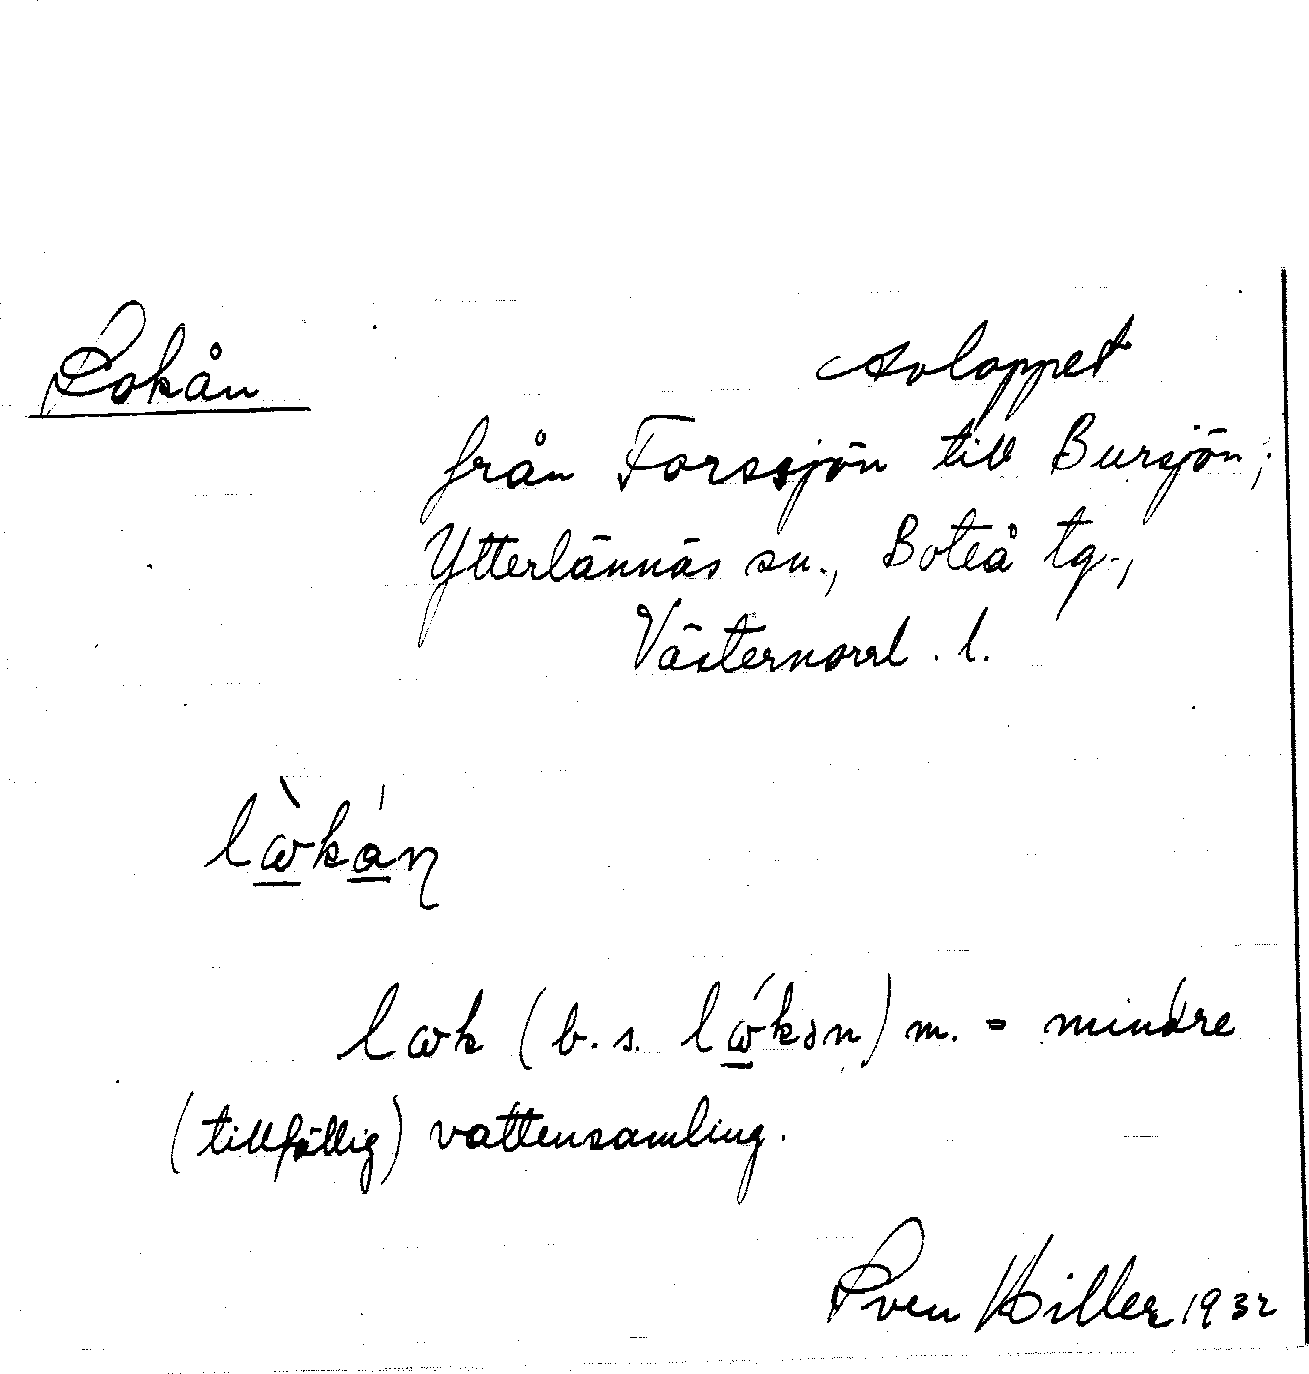 Lokån
Avloppet
från Forssjön till Bursjön;
Ytterlännäs sn., Boteå tg.,
Västernorrl. l.
lɷ̀kán
lɷk (b. s. lɷ́kən) m. = mindre
(tillfällig) vattensamling.
Sven Hiller 1932